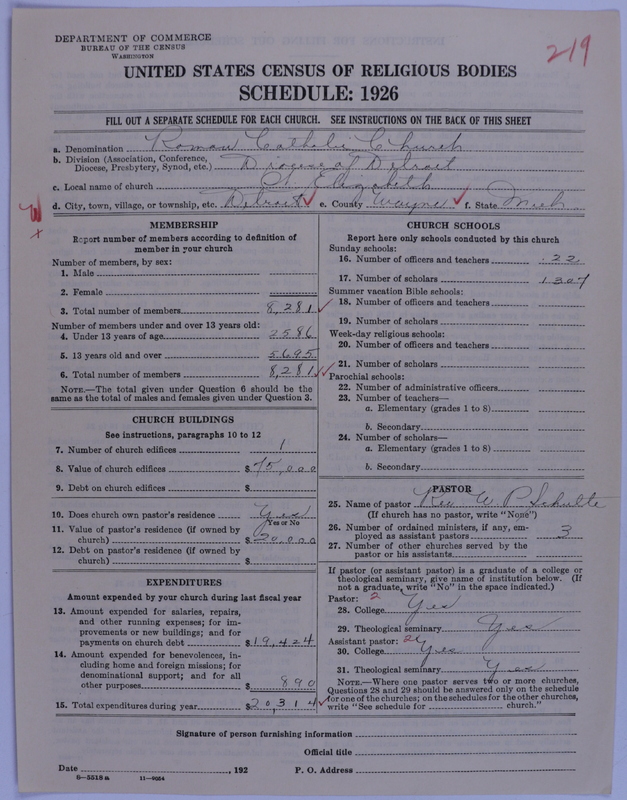 DEPARTMENT OF COMMERCE
BUREAU OF THE CENSUS
WASHINGTON
219
UNITED STATES CENSUS OF RELIGIOUS BODIES
SCHEDULE: 1926
FILL OUT A SEPARATE SCHEDULE FOR EACH CHURCH. SEE INSTRUCTIONS ON THE BACK OF THIS SHEET
a. Denomination Roman Catholic Church
b. Division (Association, Conference, Diocese, Presbytery, Synod, etc.) Diocese of Detroit
c. Local name of church St. Elizabeth
d. City, town, village, or township, etc. Detroit e. County Wayne f. State Mich.
MEMBERSHIP
Report number of members according to definition of
member in your church
Number of members, by sex:
1. Male
2. Female
3. Total number of members 8,281
Number of members under and over 13 years old:
4. Under 13 years of age 2586
5. 13 years old and over 5695
6. Total number of members 8,281
NOTE.—The total given under Question 6 should be
same as the total of males and females given under Question 3.
CHURCH BUILDINGS
See instructions, paragraphs 10 to 12
7. Number of church edifices 1
8. Value of church edifices $75,000
9. Debt on church edifices $
10. Does church own pastor's residence Yes
Yes or No
11. Value of pastor's residence (if owned by
church) $20,000
12. Debt on pastor's residence (if owned by
church) $
EXPENDITURES
Amount expended by your church during last fiscal year
13. Amount expended for salaries, repairs,
and other running expenses; for im-
provements or new buildings; and for
payments on church debt $19,424
14. Amount expended for benevolences, in-
cluding home and foreign missions; for
denominational support; and for all
other purposes $890
15. Total expenditures during year $20,314
CHURCH SCHOOLS
Report here only schools conducted by this church
Sunday schools:
16. Number of officers and teachers 22
17. Number of scholars 1307
Summer vacation Bible schools:
18. Number of officers and teachers
19. Number of scholars
Week-day religious schools:
20. Number of officers and teachers
21. Number of scholars
Parochial schools:
22. Number of administrative officers
23. Number of teachers—
a. Elementary (grades 1 to 8)
b. Secondary
24. Number of scholars—
a. Elementary (grades 1 to 8)
b. Secondary
PASTOR
25. Name of pastor Rev W. P. Schulte
(If church has no pastor, write "None")
26. Number of ordained ministers, if any, em-
ployed as assistant pastors 3
27. Number of other churches served by the
pastor or his assistants
If pastor (or assistant pastor) is a graduate of a college or
theological seminary, give name of institution below. (If
not a graduate, write "No" in the space indicated.)
Pastor: 2
28. College Yes
29. Theological seminary Yes
Assistant pastor: 2
30. College Yes
31. Theological seminary Yes
NOTE.—Where one pastor serves two or more churches,
Questions 28 and 29 should be answered only on the schedule
for one of the churches; on the schedules for the other churches,
write "See schedule for church."
Signature of person furnishing information
Official title
Date , 192 P. O. Address
8-5518 a 11-9054